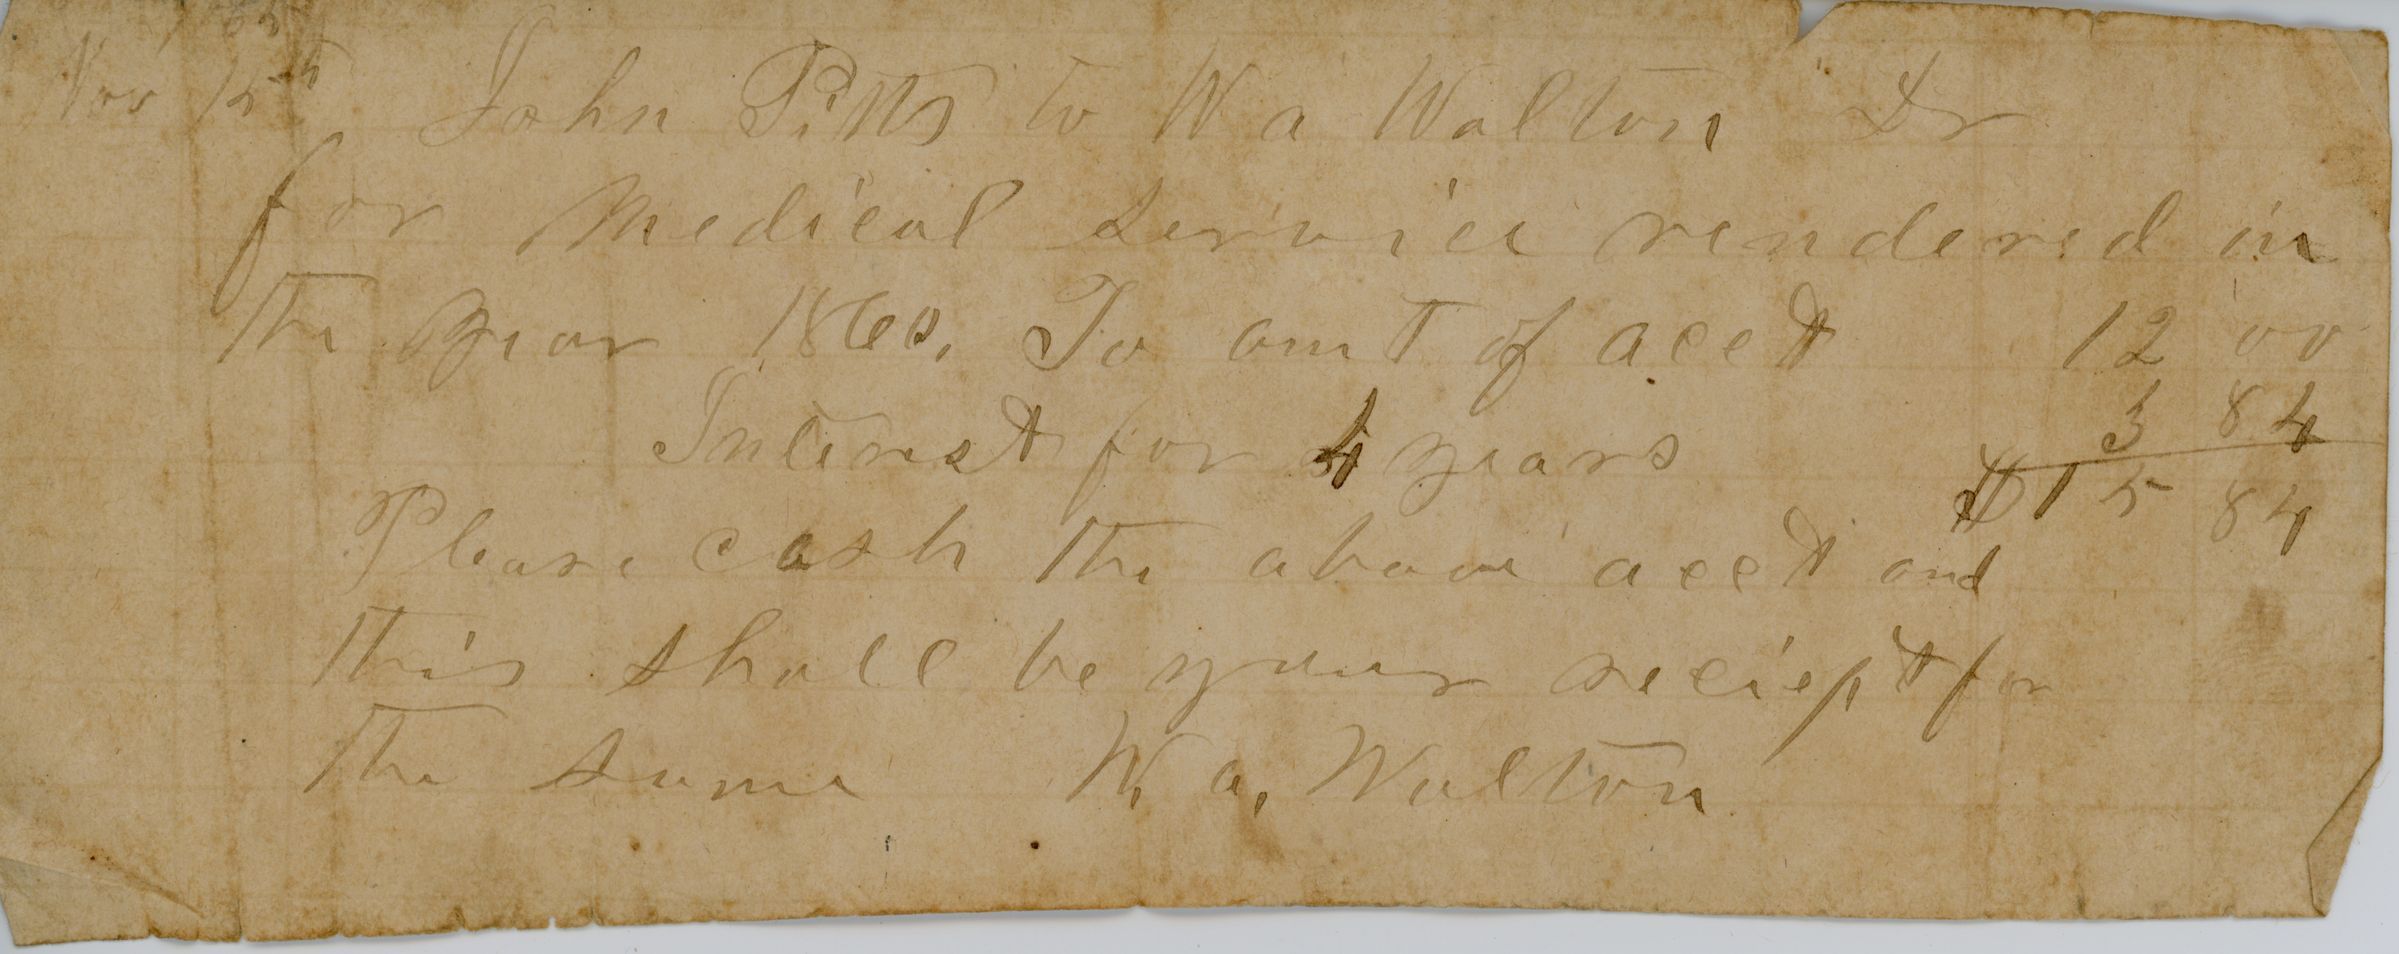 Nov 15th John Pitts to W a Walton Dr
for Medical service rendered in
the year 1860. To amt of acct 12 00
Interest for 4 years 3 84
$15 84
Please cash the above acct and
this shall be your reciept for
the same W. a. Walton